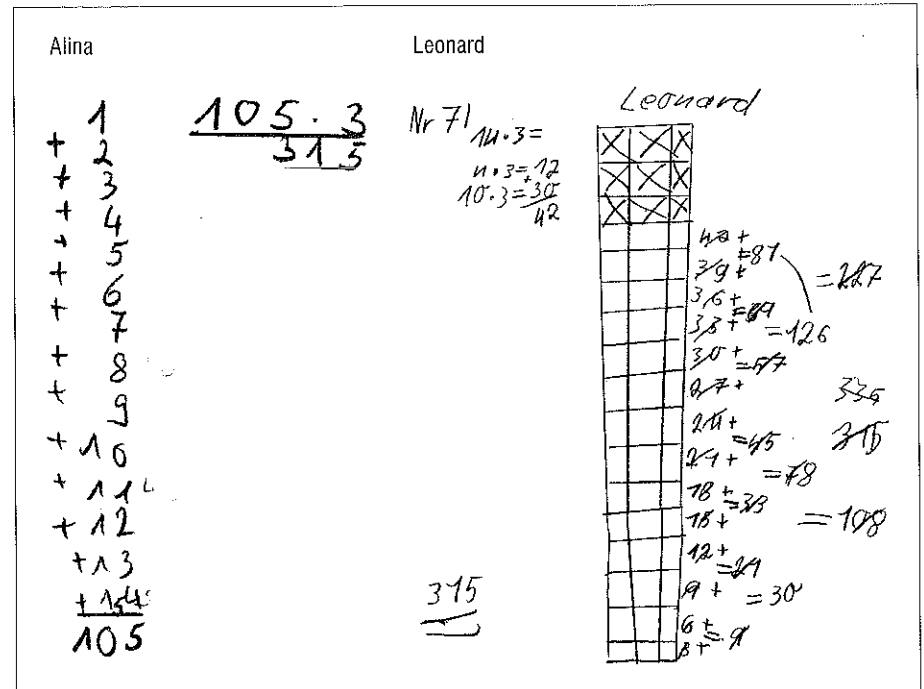 Alina
1
+ 2
+ 3
+ 4
+ 5
+ 6
+ 7
+ 8
+ 9
+ 10
+ 11
+ 12
+ 13
+ 14
105
105 · 3
315
Leonard
Nr 71
14·3=
4·3=12
10·3=+30
42
315
Leonard
X X X
X X X
X X X
42+
39+ =81
36+
33+ =69
=126
30+
27+ =57
=227
24+
21+ =45
18+
15+ =33
=78
12+
9+ =21
6+
3+ =9
=30
=108
335
315